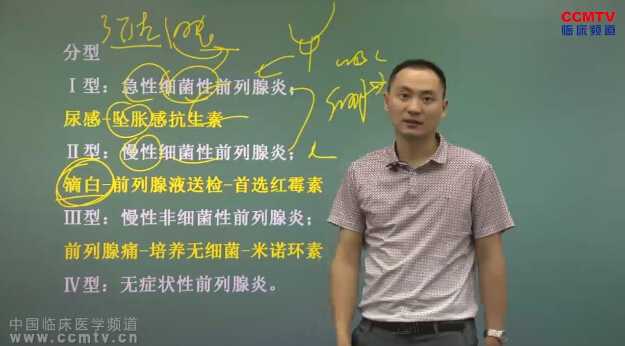 CCMTV
临床频道
分型
Ⅰ型：急性细菌性前列腺炎；
尿感-坠胀感抗生素
Ⅱ型：慢性细菌性前列腺炎；
滴白-前列腺液送检-首选红霉素
Ⅲ型：慢性非细菌性前列腺炎；
前列腺痛-培养无细菌-米诺环素
Ⅳ型：无症状性前列腺炎。
中国临床医学频道
www.ccmtv.cn